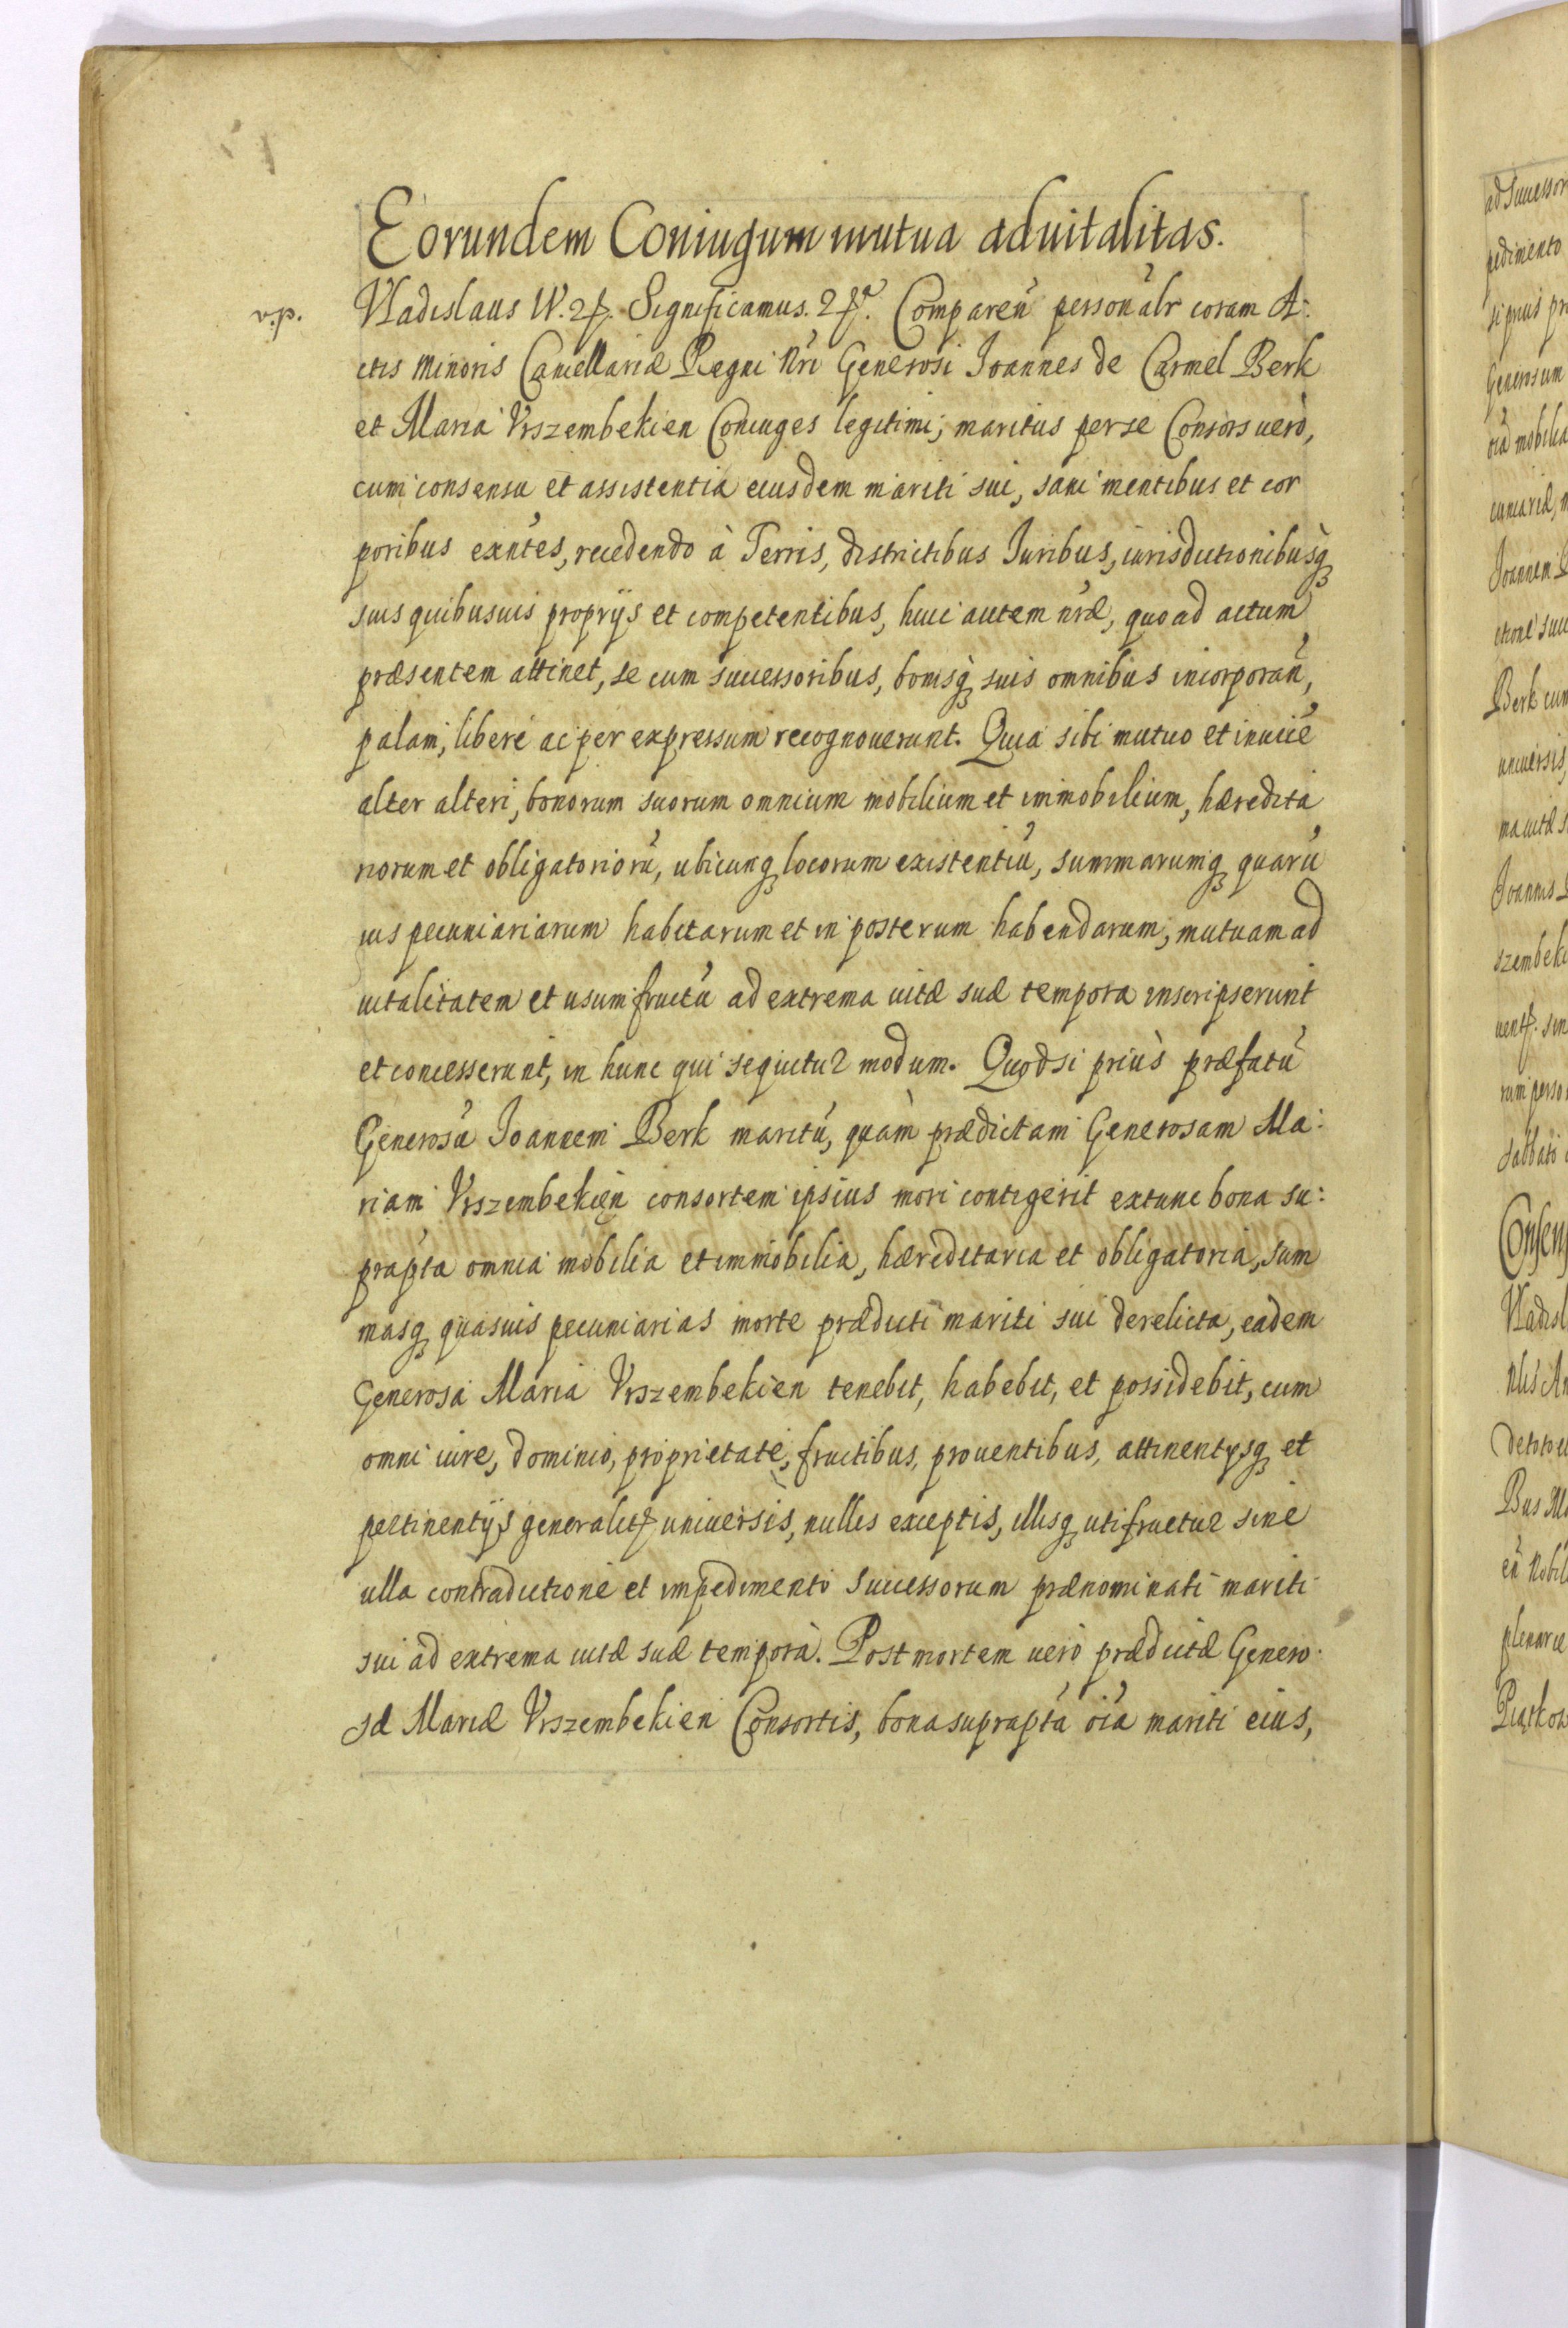 Eorundem Coniugum mutua aduitalitas.
Vladislaus IV. Significamus. Compareñ personalr coram A:
ctis Minoris Cancellariæ Regni Nri Generosi Ioannes de Carmel Berk
et Maria Vrszembekien Coniuges legitimi; maritus per se Consors uerò,
cum consensu et assistentia eiusdem mariti sui, sani mentibus et cor
poribus exñtes, recedendo à Terris, districtibus Iuribus, iurisdictionibusq
suis quibusuis proprijs et competentibus, huic autem nræ, quo ad actum
præsentem attinet, se cum successoribus, bonisq suis omnibus incorporañ,
palam, liberè ac per expressum recognouerunt. Quia sibi mutuo et inuicē
alter alteri, bonorum suorum omnium mobilium et immobilium, hæredita
riorum et obligatoriorū, ubicunq locorum existentiū, summarumq quarū
uis pecuniariarum habitarum et in posterum habendarum, mutuam ad
uitalitatem et usumfructū ad extrema uitæ suæ tempora inscripserunt
et concesserunt, in hunc qui sequitur modum. Quodsi priùs præfatū
Generosū Ioannem Berk maritū, quàm prædictam Generosam Ma:
riam Vrszembekien consortem ipsius mori contigerit extunc bona su:
prapta omnia mobilia et immobilia, hæreditaria et obligatoria, sum
masq quasuis pecuniarias morte prædicti mariti sui derelicta, eadem
Generosa Maria Vrszembekien tenebit, habebit, et possidebit, cum
omni iure, dominio, proprietate, fructibus, prouentibus, attinentysq et
pertinentijs generalitr uniuersis, nullis exceptis, illisq utifruetur sine
ulla contradictione et impedimento successorum prænominati mariti
sui ad extrema uitæ suæ tempora. Post mortem uerò prædictæ Genero
sæ Mariæ Vrszembekien Consortis, bona suprapta oia mariti eius,